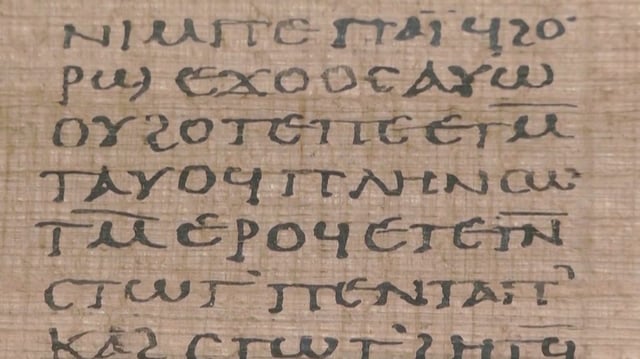 ⲛⲓⲙⲡⲉⲡⲁⲓ̈ϥϩⲟ
ⲣϣⲉϫⲟⲟⲥⲁⲩⲱ
ⲟⲩϩⲟⲧⲉⲡⲉⲉⲧⲙ̅
ⲧⲁⲩⲟϥⲡⲗⲏⲛⲥⲱ
ⲧⲙ̅ⲉⲣⲟϥⲉⲧⲉⲧⲛ̅
ⲥⲧⲱⲧʼⲡⲉⲛⲧⲁⲡʼ
ⲕⲁϩⲥⲧⲱⲧʼ